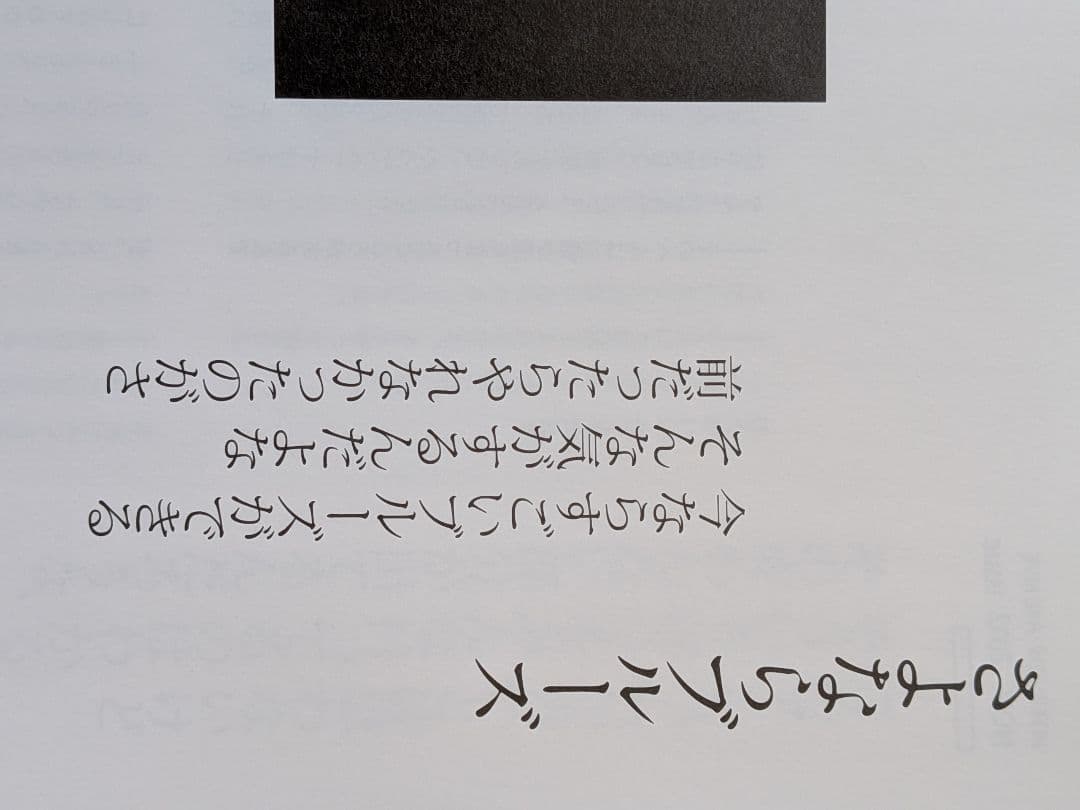 さよならブルーズ
今ならすごいブルーズができる
そんな気がするんだよな
前だったらやれなかったのがさ